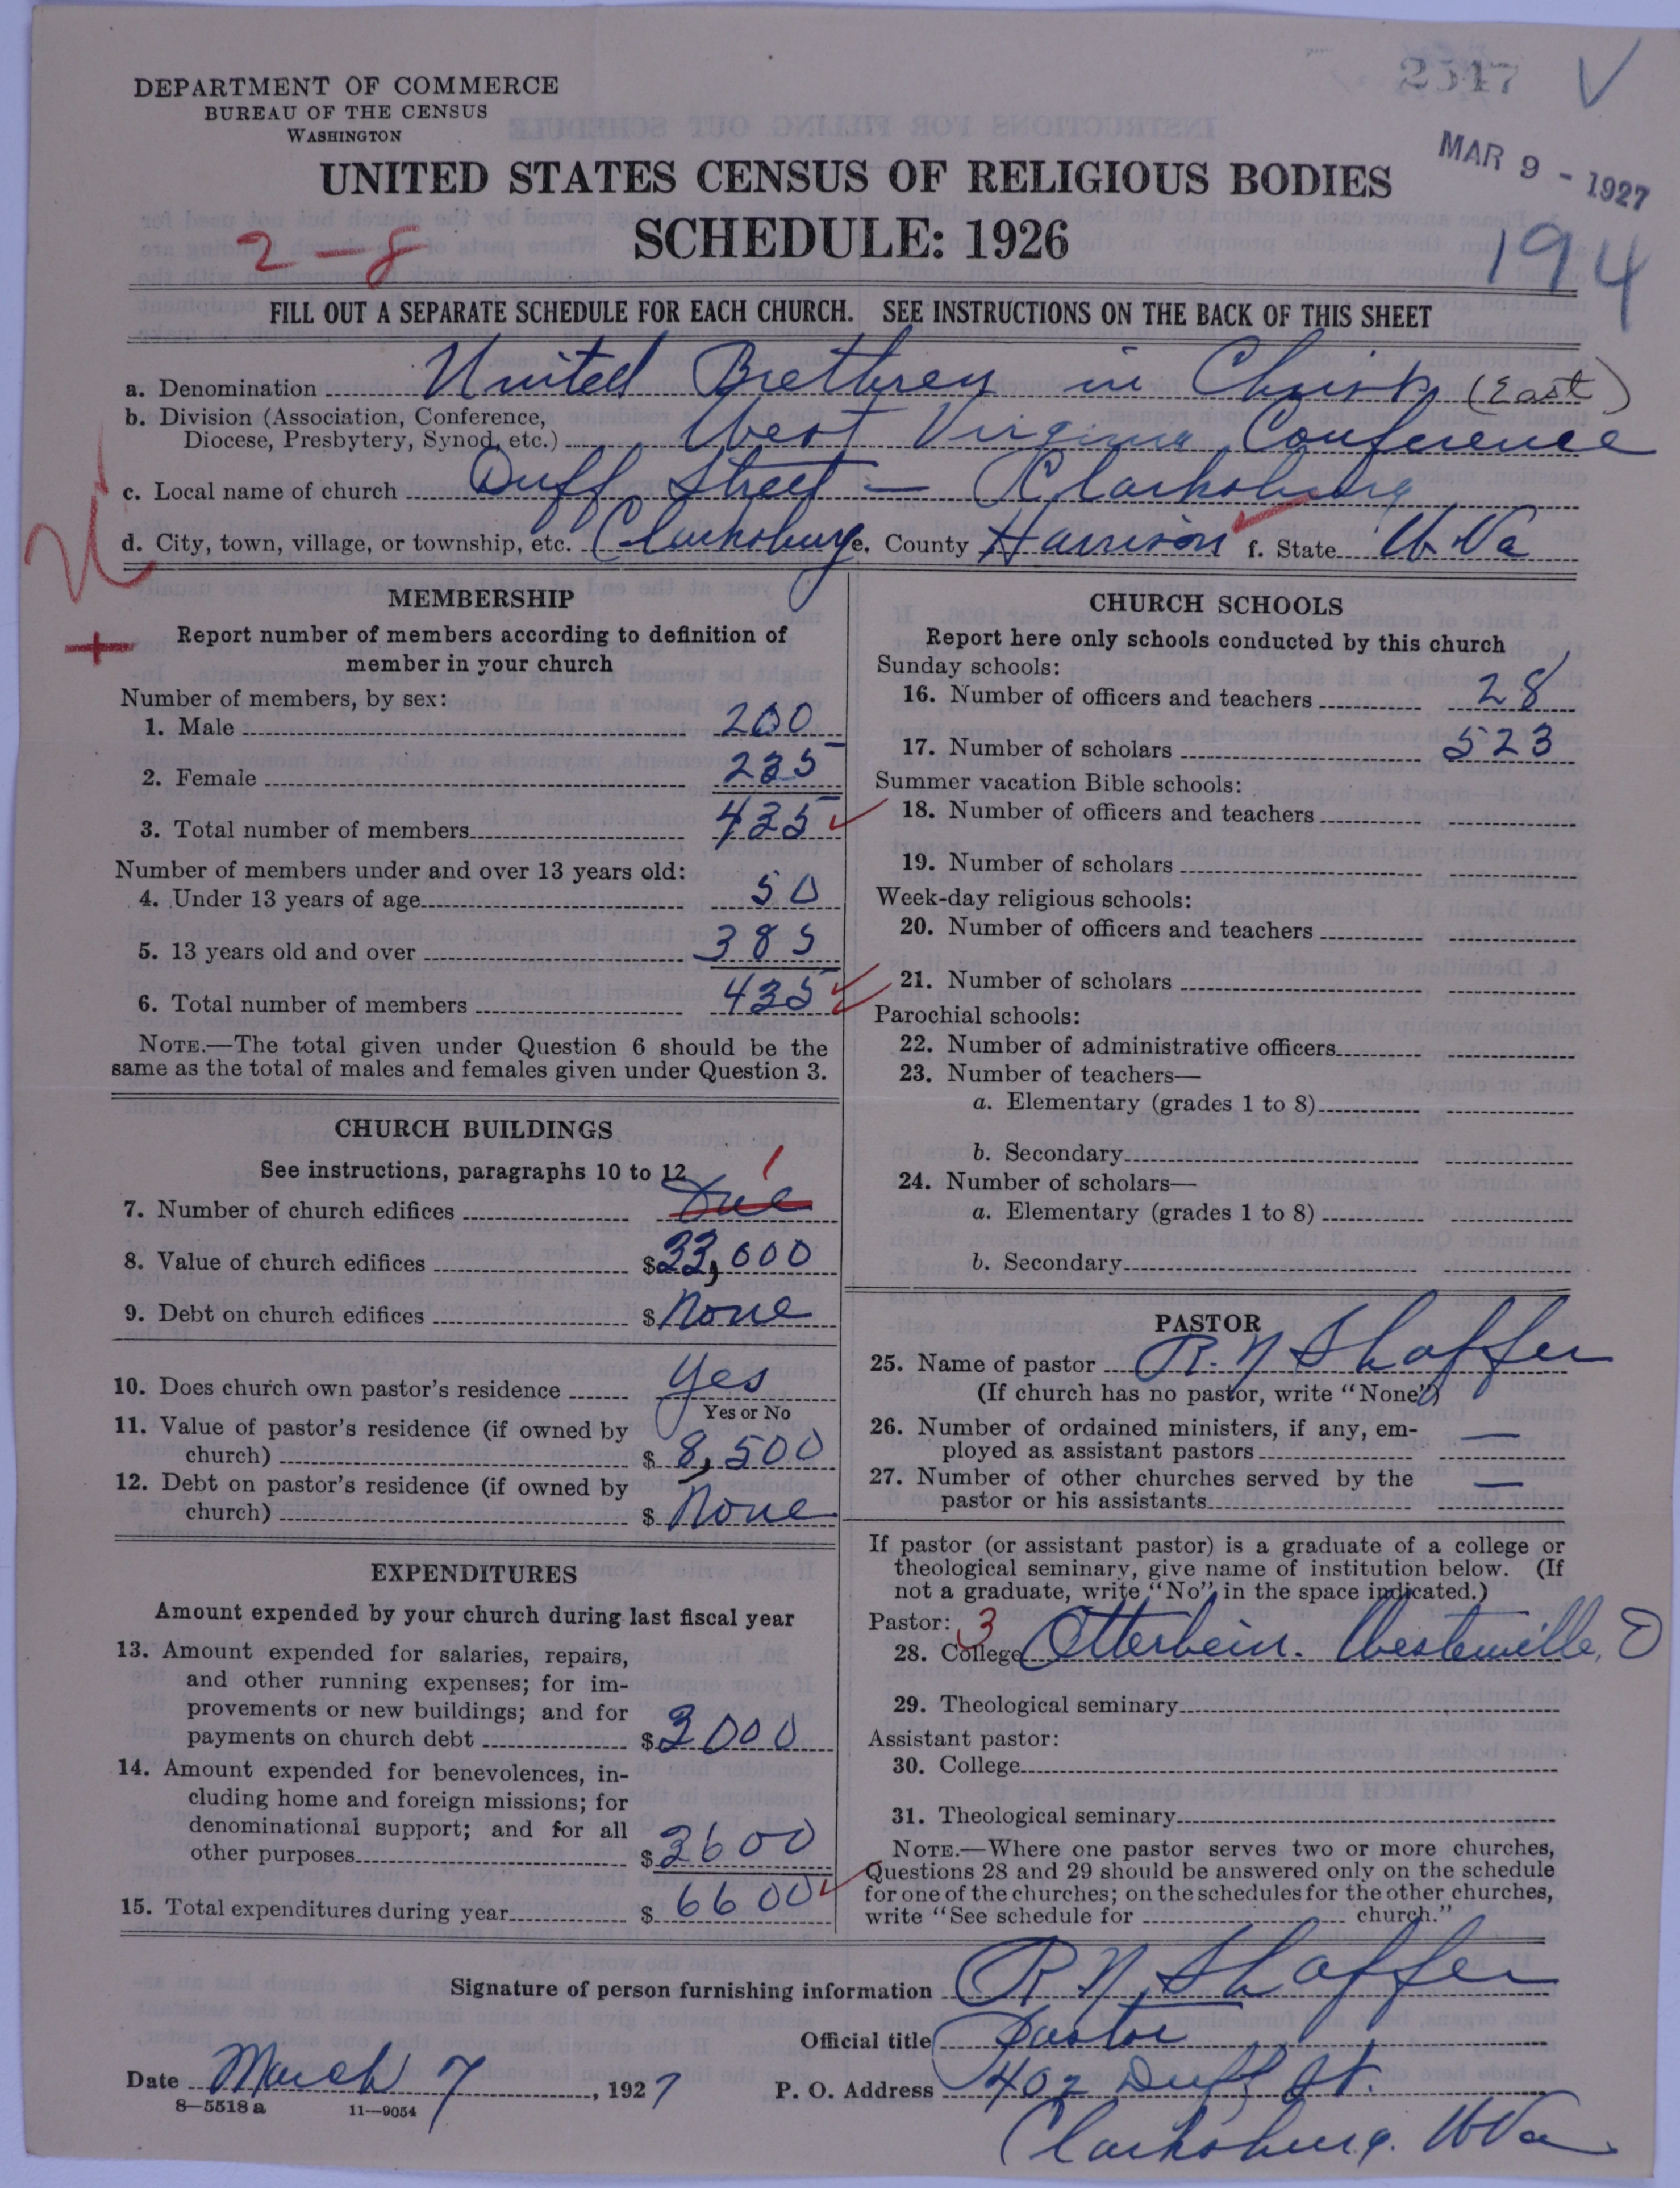 2547
MAR 9 - 1927
DEPARTMENT OF COMMERCE
BUREAU OF THE CENSUS
WASHINGTON
UNITED STATES CENSUS OF RELIGIOUS BODIES
SCHEDULE: 1926
2-8
194
FILL OUT A SEPARATE SCHEDULE FOR EACH CHURCH. SEE INSTRUCTIONS ON THE BACK OF THIS SHEET
a. Denomination United Brethren in Christ (East)
b. Division (Association, Conference,
Diocese, Presbytery, Synod, etc.) West Virginia Conference
c. Local name of church Duff Street - Clarksburg
d. City, town, village, or township, etc. Clarksburg e. County Harrison f. State W. Va
MEMBERSHIP
Report number of members according to definition of
member in your church
Number of members, by sex:
1. Male 200
2. Female 235
3. Total number of members 435
Number of members under and over 13 years old:
4. Under 13 years of age 50
5. 13 years old and over 385
6. Total number of members 435
NOTE.—The total given under Question 6 should be the
same as the total of males and females given under Question 3.
CHURCH BUILDINGS
See instructions, paragraphs 10 to 12
1
7. Number of church edifices One
8. Value of church edifices $33,000
9. Debt on church edifices $None
10. Does church own pastor's residence Yes
Yes or No
11. Value of pastor's residence (if owned by
church) $ 8,500
12. Debt on pastor's residence (if owned by
church) $ None
EXPENDITURES
Amount expended by your church during last fiscal year
13. Amount expended for salaries, repairs,
and other running expenses; for im-
provements or new buildings; and for
payments on church debt $3000
14. Amount expended for benevolences, in-
cluding home and foreign missions; for
denominational support; and for all
other purposes $3600
15. Total expenditures during year $ 6600
CHURCH SCHOOLS
Report here only schools conducted by this church
Sunday schools:
16. Number of officers and teachers 28
17. Number of scholars 523
Summer vacation Bible schools:
18. Number of officers and teachers
19. Number of scholars
Week-day religious schools:
20. Number of officers and teachers
21. Number of scholars
Parochial schools:
22. Number of administrative officers
23. Number of teachers—
a. Elementary (grades 1 to 8)
b. Secondary
24. Number of scholars—
a. Elementary (grades 1 to 8)
b. Secondary
PASTOR
25. Name of pastor R. N Shaffer
(If church has no pastor, write "None")
26. Number of ordained ministers, if any, em-
ployed as assistant pastors —
27. Number of other churches served by the
pastor or his assistants —
If pastor (or assistant pastor) is a graduate of a college or
theological seminary, give name of institution below. (If
not a graduate, write "No" in the space indicated.)
Pastor: 3
28. College Otterbein. Westerville, O
29. Theological seminary
Assistant pastor:
30. College
31. Theological seminary
NOTE.—Where one pastor serves two or more churches,
Questions 28 and 29 should be answered only on the schedule
for one of the churches; on the schedules for the other churches,
write "See schedule for church."
Signature of person furnishing information R N Shaffer
Official title Pastor
Date March 7, 1927 P. O. Address 407 Duff St.
8-5518 a 11-9054
Clarksburg. W Va